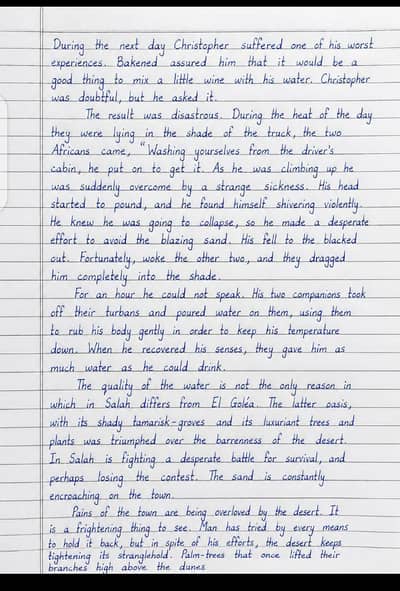 During the next day Christopher suffered one of his worst
experiences. Bakened assured him that it would be a
good thing to mix a little wine with his water. Christopher
was doubtful, but he asked it.
The result was disastrous. During the heat of the day
they were lying in the shade of the truck, the two
Africans came, "Washing yourselves from the driver's
cabin, he put on to get it. As he was climbing up he
was suddenly overcome by a strange sickness. His head
started to pound, and he found himself shivering violently.
He knew he was going to collapse, so he made a desperate
effort to avoid the blazing sand. His fell to the blacked
out. Fortunately, woke the other two, and they dragged
him completely into the shade.
For an hour he could not speak. His two companions took
off their turbans and poured water on them, using them
to rub his body gently in order to keep his temperature
down. When he recovered his senses, they gave him as
much water as he could drink.
The quality of the water is not the only reason in
which in Salah differs from El Goléa. The latter oasis,
with its shady tamarisk-groves and its luxuriant trees and
plants was triumphed over the barrenness of the desert.
In Salah is fighting a desperate battle for survival, and
perhaps losing the contest. The sand is constantly
encroaching on the town.
Pains of the town are being overloved by the desert. It
is a frightening thing to see. Man has tried by every means
to hold it back, but in spite of his efforts, the desert keeps
tightening its stranglehold. Palm-trees that once lifted their
branches high above the dunes